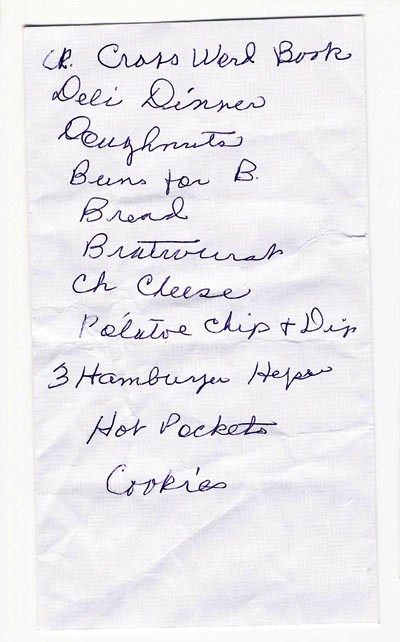 CR. Cross Werd Book
Deli Dinner
Doughnuts
Buns for B.
Bread
Bratwurst
Ch Cheese
Potatoe Chip + Dip
3 Hamburger Heps
Hot Pockets
Cookies